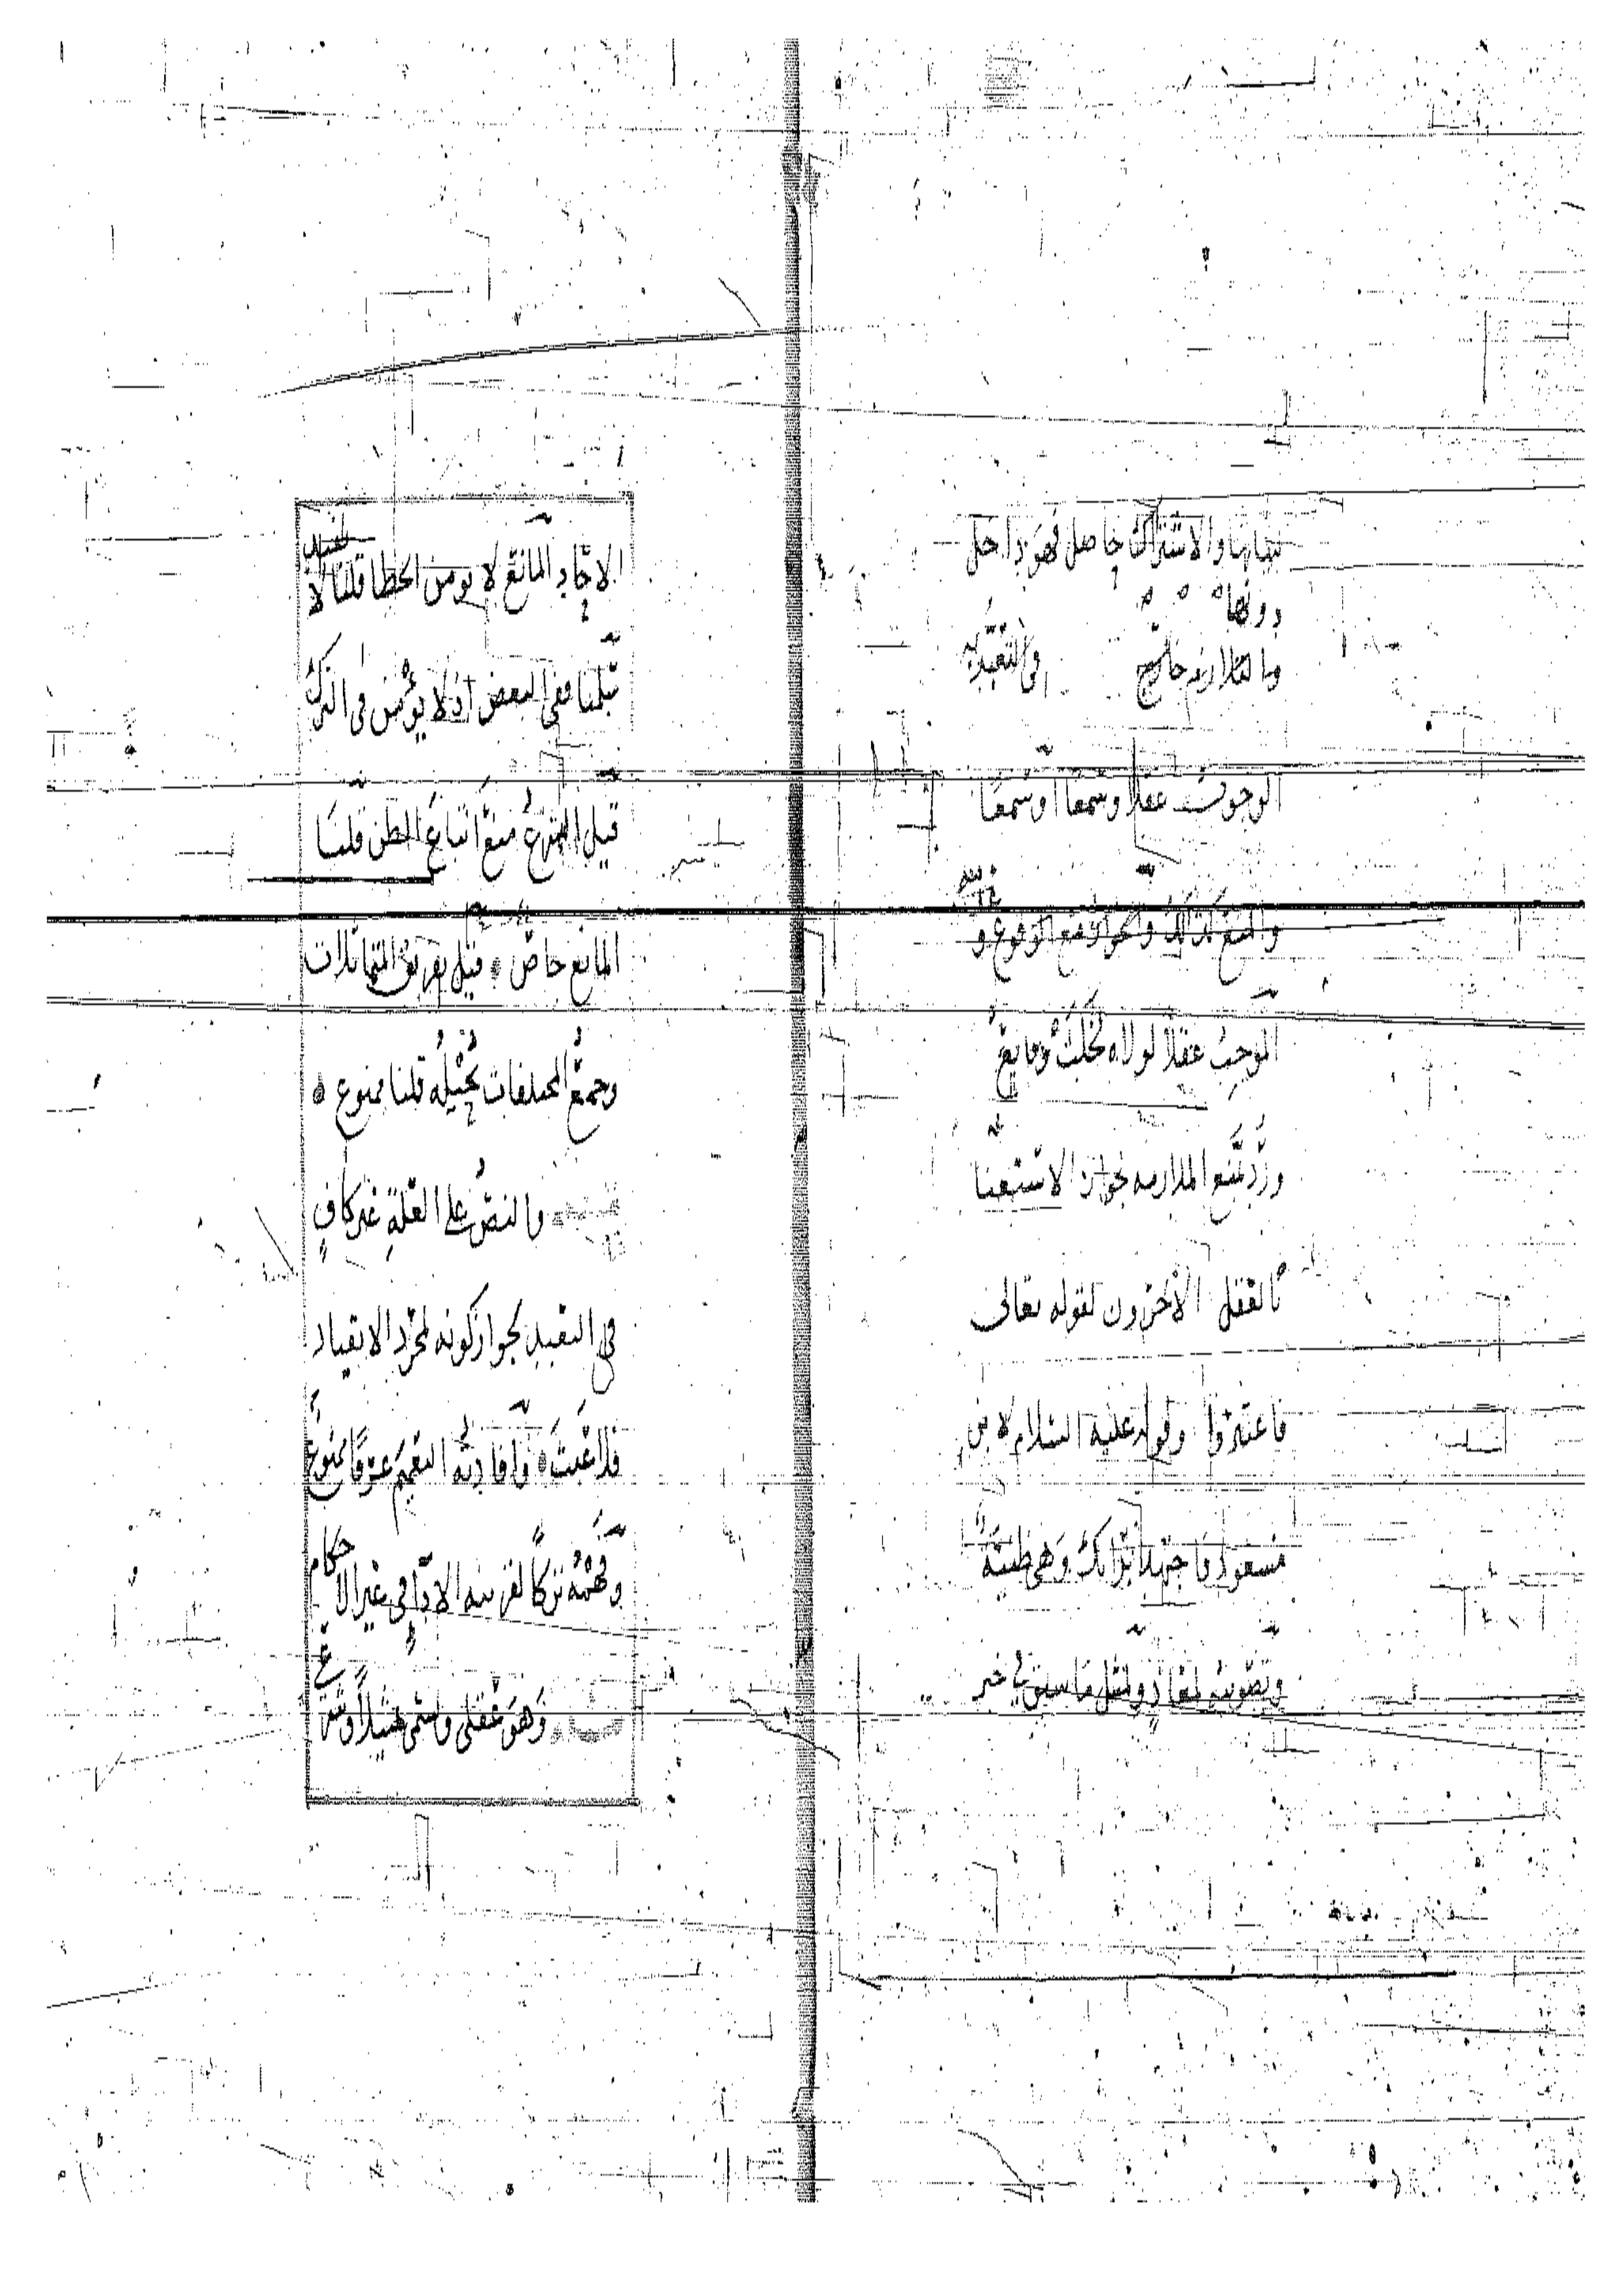 والاشتراك حاصل فهو داخل
دونها
وما خارج في التعبد به
الوجوب عقلا وسمعا او سمعا
والمنع كذلك والجواز مع الوقوع و
الموجب عقلا لولاه لخلت وقايع
ورد بمنع الملازمه لجواز الاستغنا
بالعقل الآخرون لقوله تعالى
فاعتبروا وقوله عليه السلام لابن
مسعود فاجتهد برأيك وهي ظنية
وتصويبه لمعاذ ولمثل ما سبق في خبر
الآحاد المانع لا يؤمن الخطا قلنا لا
سلمنا ففي البعض اذ لا يؤمن في الترك
قيل الشرع منع اتباع الظن قلنا
المانع خاص قيل تفريق المتماثلات
وجمع المختلفات يحيله قلنا ممنوع
والنص على العلة غير كاف
في التعبد لجواز كونه لمجرد الانقياد
فلا عبث وافادته التعميم عرفا ممنوع
وفهمه تركا لقرينه الاذا في غير الاحكام
وهو عقلي ويسمى تمثيلا وشرعي